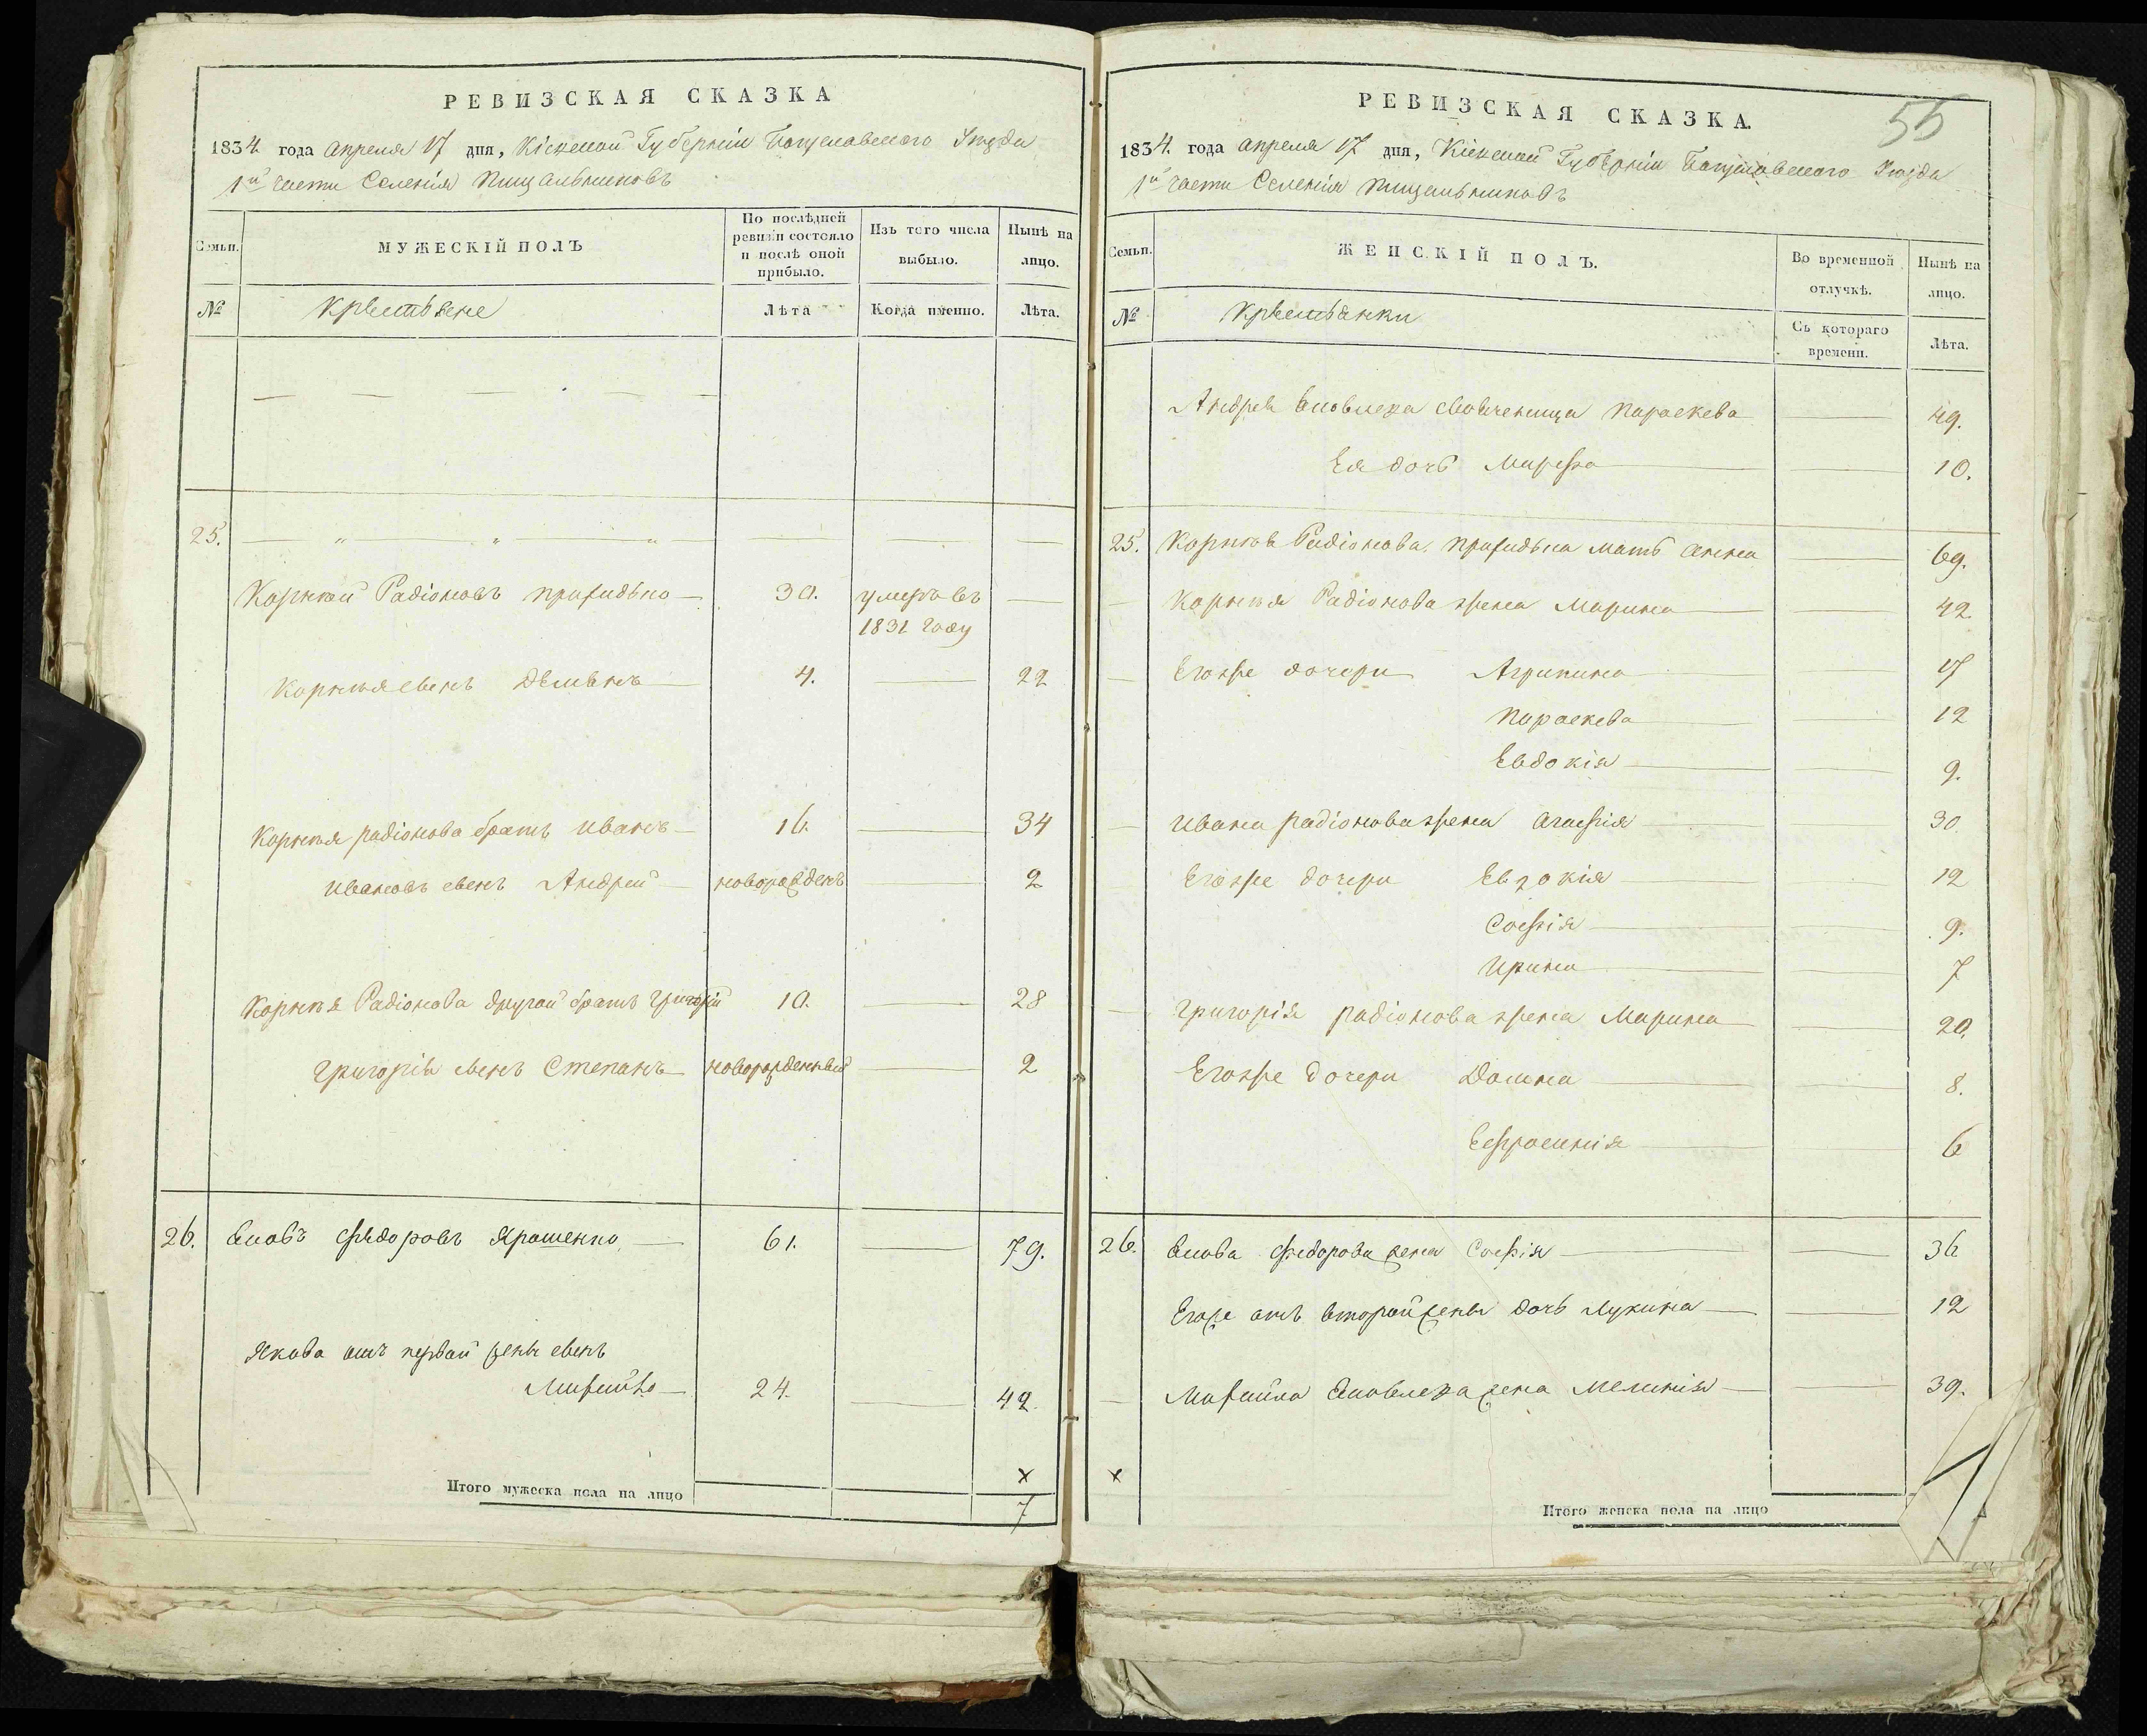 РЕВИЗСКАЯ СКАЗКА
1834 года апреля 17 дня, Кіевской Губерніи Богуславскаго Уезда
1й части Селенія Пищальниковъ
Семьи.
МУЖЕСКІЙ ПОЛЪ
По послѣдней ревизіи состояло и послѣ оной прибыло.
Изъ того числа выбыло.
Нынѣ на лицо.
№
Крестьяне
Лѣта
Когда именно.
Лѣта.
25.
Корней Радіоновъ 30. умеръ въ
1831 году
Корнея сынъ Демьянъ 4. 22
Корнея радіонова братъ иванъ 16. 34
ивановъ сынъ Андрей новорожденъ 2
Корнея Радіонова другой братъ григорій 10. 28
григорія сынъ Степанъ новорожденный 2
26. Яковъ федоровъ Ярошенко 61. 79.
Якова отъ первой жены сынъ
Михайло 24. 42.
х
Итого мужеска пола на лицо 7
РЕВИЗСКАЯ СКАЗКА.
55
1834. года апреля 17 дня, Кіевской Губерніи Богуславскаго Уезда
1й части Селенія пищальниковъ
Семьи.
ЖЕНСКІЙ ПОЛЪ.
Во временной отлучкѣ.
Нынѣ на лицо.
№
Крестьянки
Съ котораго времени.
Лѣта.
Андрея Яковлева Параскева 49.
Ея дочь Марфа 10.
25. Корнея Радіонова мать анна 69.
Корнея Радіонова жена Марина 42
Егоже дочери Агрипина 17
Параскева 12
Евдокія 9.
Ивана радіонова жена агафія 30.
Егоже дочери Евдокія 12
Софія 9.
Ирина 7
григорія радіонова жена Марина 20.
Егоже дочери Домна 8.
Ефросинія 6
26. Якова федорова жена Софія 36
Егоже отъ второй жены дочь Лукина 12
Михайла Яковлева жена Меланія 39.
х
Итого женска пола на лицо